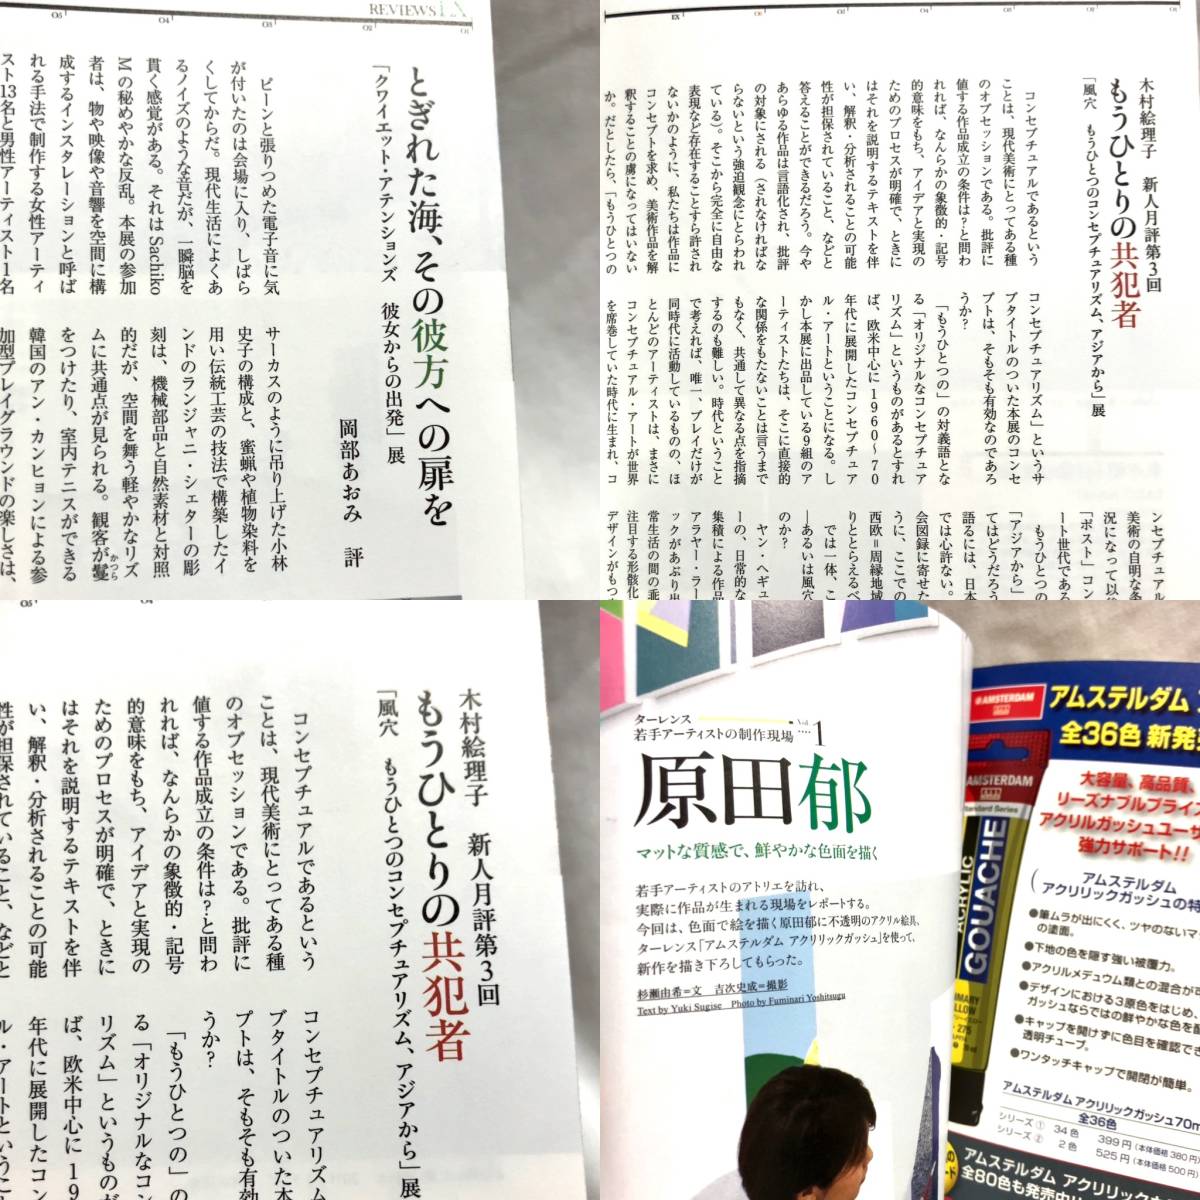 REVIEWS IX
とぎれた海、その彼方への扉を
「クワイエット・アテンションズ　彼女からの出発」展
岡部あおみ　評
ピーンと張りつめた電子音に気
が付いたのは会場に入り、しばら
くしてからだ。現代生活によくあ
るノイズのような音だが、一瞬脳を
貫く感覚がある。それは Sachiko
Mの秘めやかな反乱。本展の参加
者は、物や映像や音響を空間に構
成するインスタレーションと呼ば
れる手法で制作する女性アーティ
スト13名と男性アーティスト1名
サーカスのように吊り上げた小林
史子の構成と、蜜蝋や植物染料を
用い伝統工芸の技法で構築したイ
ンドのランジャニ・シェターの彫
刻は、機械部品と自然素材と対照
的だが、空間を舞う軽やかなリズ
ムに共通点が見られる。観客が鬘
かつら
をつけたり、室内テニスができる
韓国のアン・カンヒョンによる参
加型プレイグラウンドの楽しさは、
木村絵理子　新人月評第3回
もうひとりの共犯者
「風穴　もうひとつのコンセプチュアリズム、アジアから」展
コンセプチュアルであるという
ことは、現代美術にとってある種
のオブセッションである。批評に
値する作品成立の条件は?と問わ
れれば、なんらかの象徴的・記号
的意味をもち、アイデアと実現の
ためのプロセスが明確で、ときに
はそれを説明するテキストを伴
い、解釈・分析されることの可能
性が担保されていること、などと
答えることができるだろう。今や
あらゆる作品は言語化され、批評
の対象にされる（されなければな
らないという強迫観念にとらわれ
ている）。そこから完全に自由な
表現など存在することすら許され
ないかのように、私たちは作品に
コンセプトを求め、美術作品を解
釈することの虜になってはいない
か。だとしたら、「もうひとつの
コンセプチュアリズム」というサ
ブタイトルのついた本展のコンセ
プトは、そもそも有効なのであろ
うか?
「もうひとつの」の対義語とな
る「オリジナルなコンセプチュア
リズム」というものがあるとすれ
ば、欧米中心に1960〜70
年代に展開したコンセプチュア
ル・アートということになる。し
かし本展に出品している9組のア
ーティストたちは、そこに直接的
な関係をもたないことは言うまで
もなく、共通して異なる点を指摘
するのも難しい。時代ということ
で考えれば、唯一、プレイだけが
同時代に活動しているものの、ほ
とんどのアーティストは、まさに
コンセプチュアル・アートが世界
を席巻していた時代に生まれ、コ
ンセプチュアル
美術の自明な条
況になって以
「ポスト」コン
ート世代であ
もうひとつの
「アジアから」
てはどうだろう
語るには、日本
では心許ない。
会図録に寄せた
うに、ここでの
西欧＝周縁地域
りととらえるべ
では一体、こ
―あるいは風穴
のか?
ヤン・ヘギュ
ーの、日常的な
集積による作品
アラヤー・ラー
ックがあぶり出
常生活の間の乖
注目する形骸化
デザインがもつ
木村絵理子　新人月評第3回
もうひとりの共犯者
「風穴　もうひとつのコンセプチュアリズム、アジアから」展
コンセプチュアルであるという
ことは、現代美術にとってある種
のオブセッションである。批評に
値する作品成立の条件は?と問わ
れれば、なんらかの象徴的・記号
的意味をもち、アイデアと実現の
ためのプロセスが明確で、ときに
はそれを説明するテキストを伴
い、解釈・分析されることの可能
性が担保されていること、などと
コンセプチュアリズム
ブタイトルのついた本
プトは、そもそも有効
うか?
「もうひとつの」の
る「オリジナルなコン
リズム」というものが
ば、欧米中心に19
年代に展開したコン
ル・アートというこ
ターレンス
若手アーティストの制作現場
Vol. 1
原田郁
マットな質感で、鮮やかな色面を描く
若手アーティストのアトリエを訪れ、
実際に作品が生まれる現場をレポートする。
今回は、色面で絵を描く原田郁に不透明のアクリル絵具、
ターレンス「アムステルダム アクリリックガッシュ」を使って、
新作を描き下ろしてもらった。
杉瀬由希=文　吉次史成=撮影
Text by Yuki Sugise　Photo by Fuminari Yoshitsugu
AMSTERDAM
アムステルダム
全36色 新発売
大容量、高品質、
リーズナブルプライス
アクリルガッシュユーザ
強力サポート!!
AMSTERDAM
Standard Series
ACRYLIC
GOUACHE
275
アムステルダム
アクリリックガッシュの特
●筆ムラが出にくく、ツヤのないマッ
の塗面。
●下地の色を隠す強い被覆力。
●アクリルメデュウム類との混合が可
●デザインにおける3原色をはじめ、
ガッシュならではの鮮やかな色を
●キャップを開けずに色目を確認でき
透明チューブ。
●ワンタッチキャップで開閉が簡単。
アムステルダム アクリリックガッシュ70m
全36色
シリーズ① 34色 399円(本体価格380円)
シリーズ② 2色 525円(本体価格500円)
アムステルダム アクリ
全80色も発売中